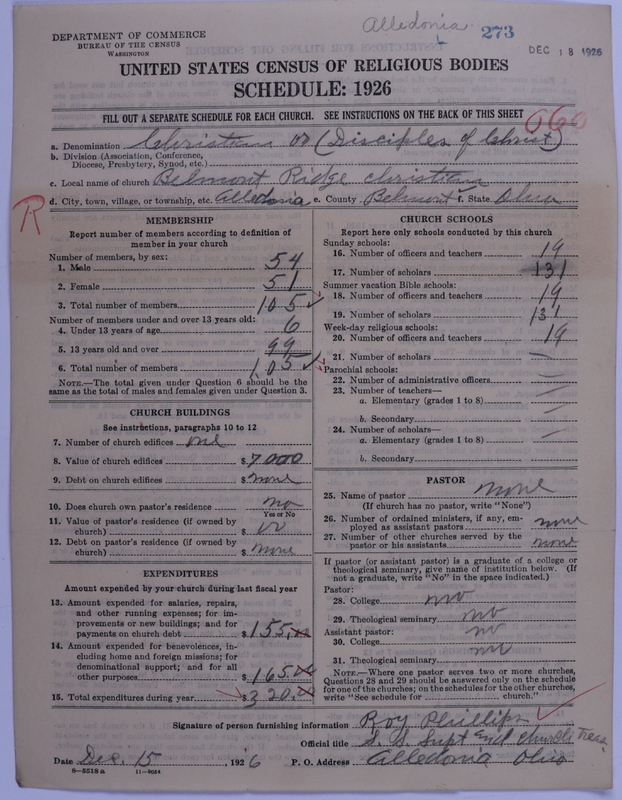 Alledonia
273
DEC 18 1926
DEPARTMENT OF COMMERCE
BUREAU OF THE CENSUS
WASHINGTON
UNITED STATES CENSUS OF RELIGIOUS BODIES
SCHEDULE: 1926
FILL OUT A SEPARATE SCHEDULE FOR EACH CHURCH. SEE INSTRUCTIONS ON THE BACK OF THIS SHEET
060
a. Denomination Christians or (Disciples of Christ)
b. Division (Association, Conference,
Diocese, Presbytery, Synod, etc.)
c. Local name of church Belmont Ridge Christian
d. City, town, village, or township, etc. Alledonia e. County Belmont f. State Ohio
R
MEMBERSHIP
Report number of members according to definition of
member in your church
Number of members, by sex:
1. Male 54
2. Female 51
3. Total number of members 105
Number of members under and over 13 years old:
4. Under 13 years of age 6
5. 13 years old and over 99
6. Total number of members 105
NOTE.—The total given under Question 6 should be the
same as the total of males and females given under Question 3.
CHURCH BUILDINGS
See instructions, paragraphs 10 to 12
7. Number of church edifices one
8. Value of church edifices $ 7000
9. Debt on church edifices $ none
10. Does church own pastor's residence no
Yes or No
11. Value of pastor's residence (if owned by
church) $ no
12. Debt on pastor's residence (if owned by
church) $ none
EXPENDITURES
Amount expended by your church during last fiscal year
13. Amount expended for salaries, repairs,
and other running expenses; for im-
provements or new buildings; and for
payments on church debt $ 155.00
14. Amount expended for benevolences, in-
cluding home and foreign missions; for
denominational support; and for all
other purposes $ 165.00
15. Total expenditures during year $ 320.00
CHURCH SCHOOLS
Report here only schools conducted by this church
Sunday schools:
16. Number of officers and teachers 19
17. Number of scholars 131
Summer vacation Bible schools:
18. Number of officers and teachers 19
19. Number of scholars 131
Week-day religious schools:
20. Number of officers and teachers 19
21. Number of scholars —
Parochial schools:
22. Number of administrative officers —
23. Number of teachers—
a. Elementary (grades 1 to 8) —
b. Secondary —
24. Number of scholars—
a. Elementary (grades 1 to 8) —
b. Secondary
PASTOR
25. Name of pastor none
(If church has no pastor, write "None")
26. Number of ordained ministers, if any, em-
ployed as assistant pastors none
27. Number of other churches served by the
pastor or his assistants none
If pastor (or assistant pastor) is a graduate of a college or
theological seminary, give name of institution below. (If
not a graduate, write "No" in the space indicated.)
Pastor:
28. College no
29. Theological seminary no
Assistant pastor: no
30. College no
31. Theological seminary
NOTE.—Where one pastor serves two or more churches,
Questions 28 and 29 should be answered only on the schedule
for one of the churches; on the schedules for the other churches,
write "See schedule for church."
Signature of person furnishing information Roy Phillips
Official title S. S. Supt and Church Treas
Date Dec. 15, 1926 P. O. Address Alledonia Ohio
8—5518a 11—9024